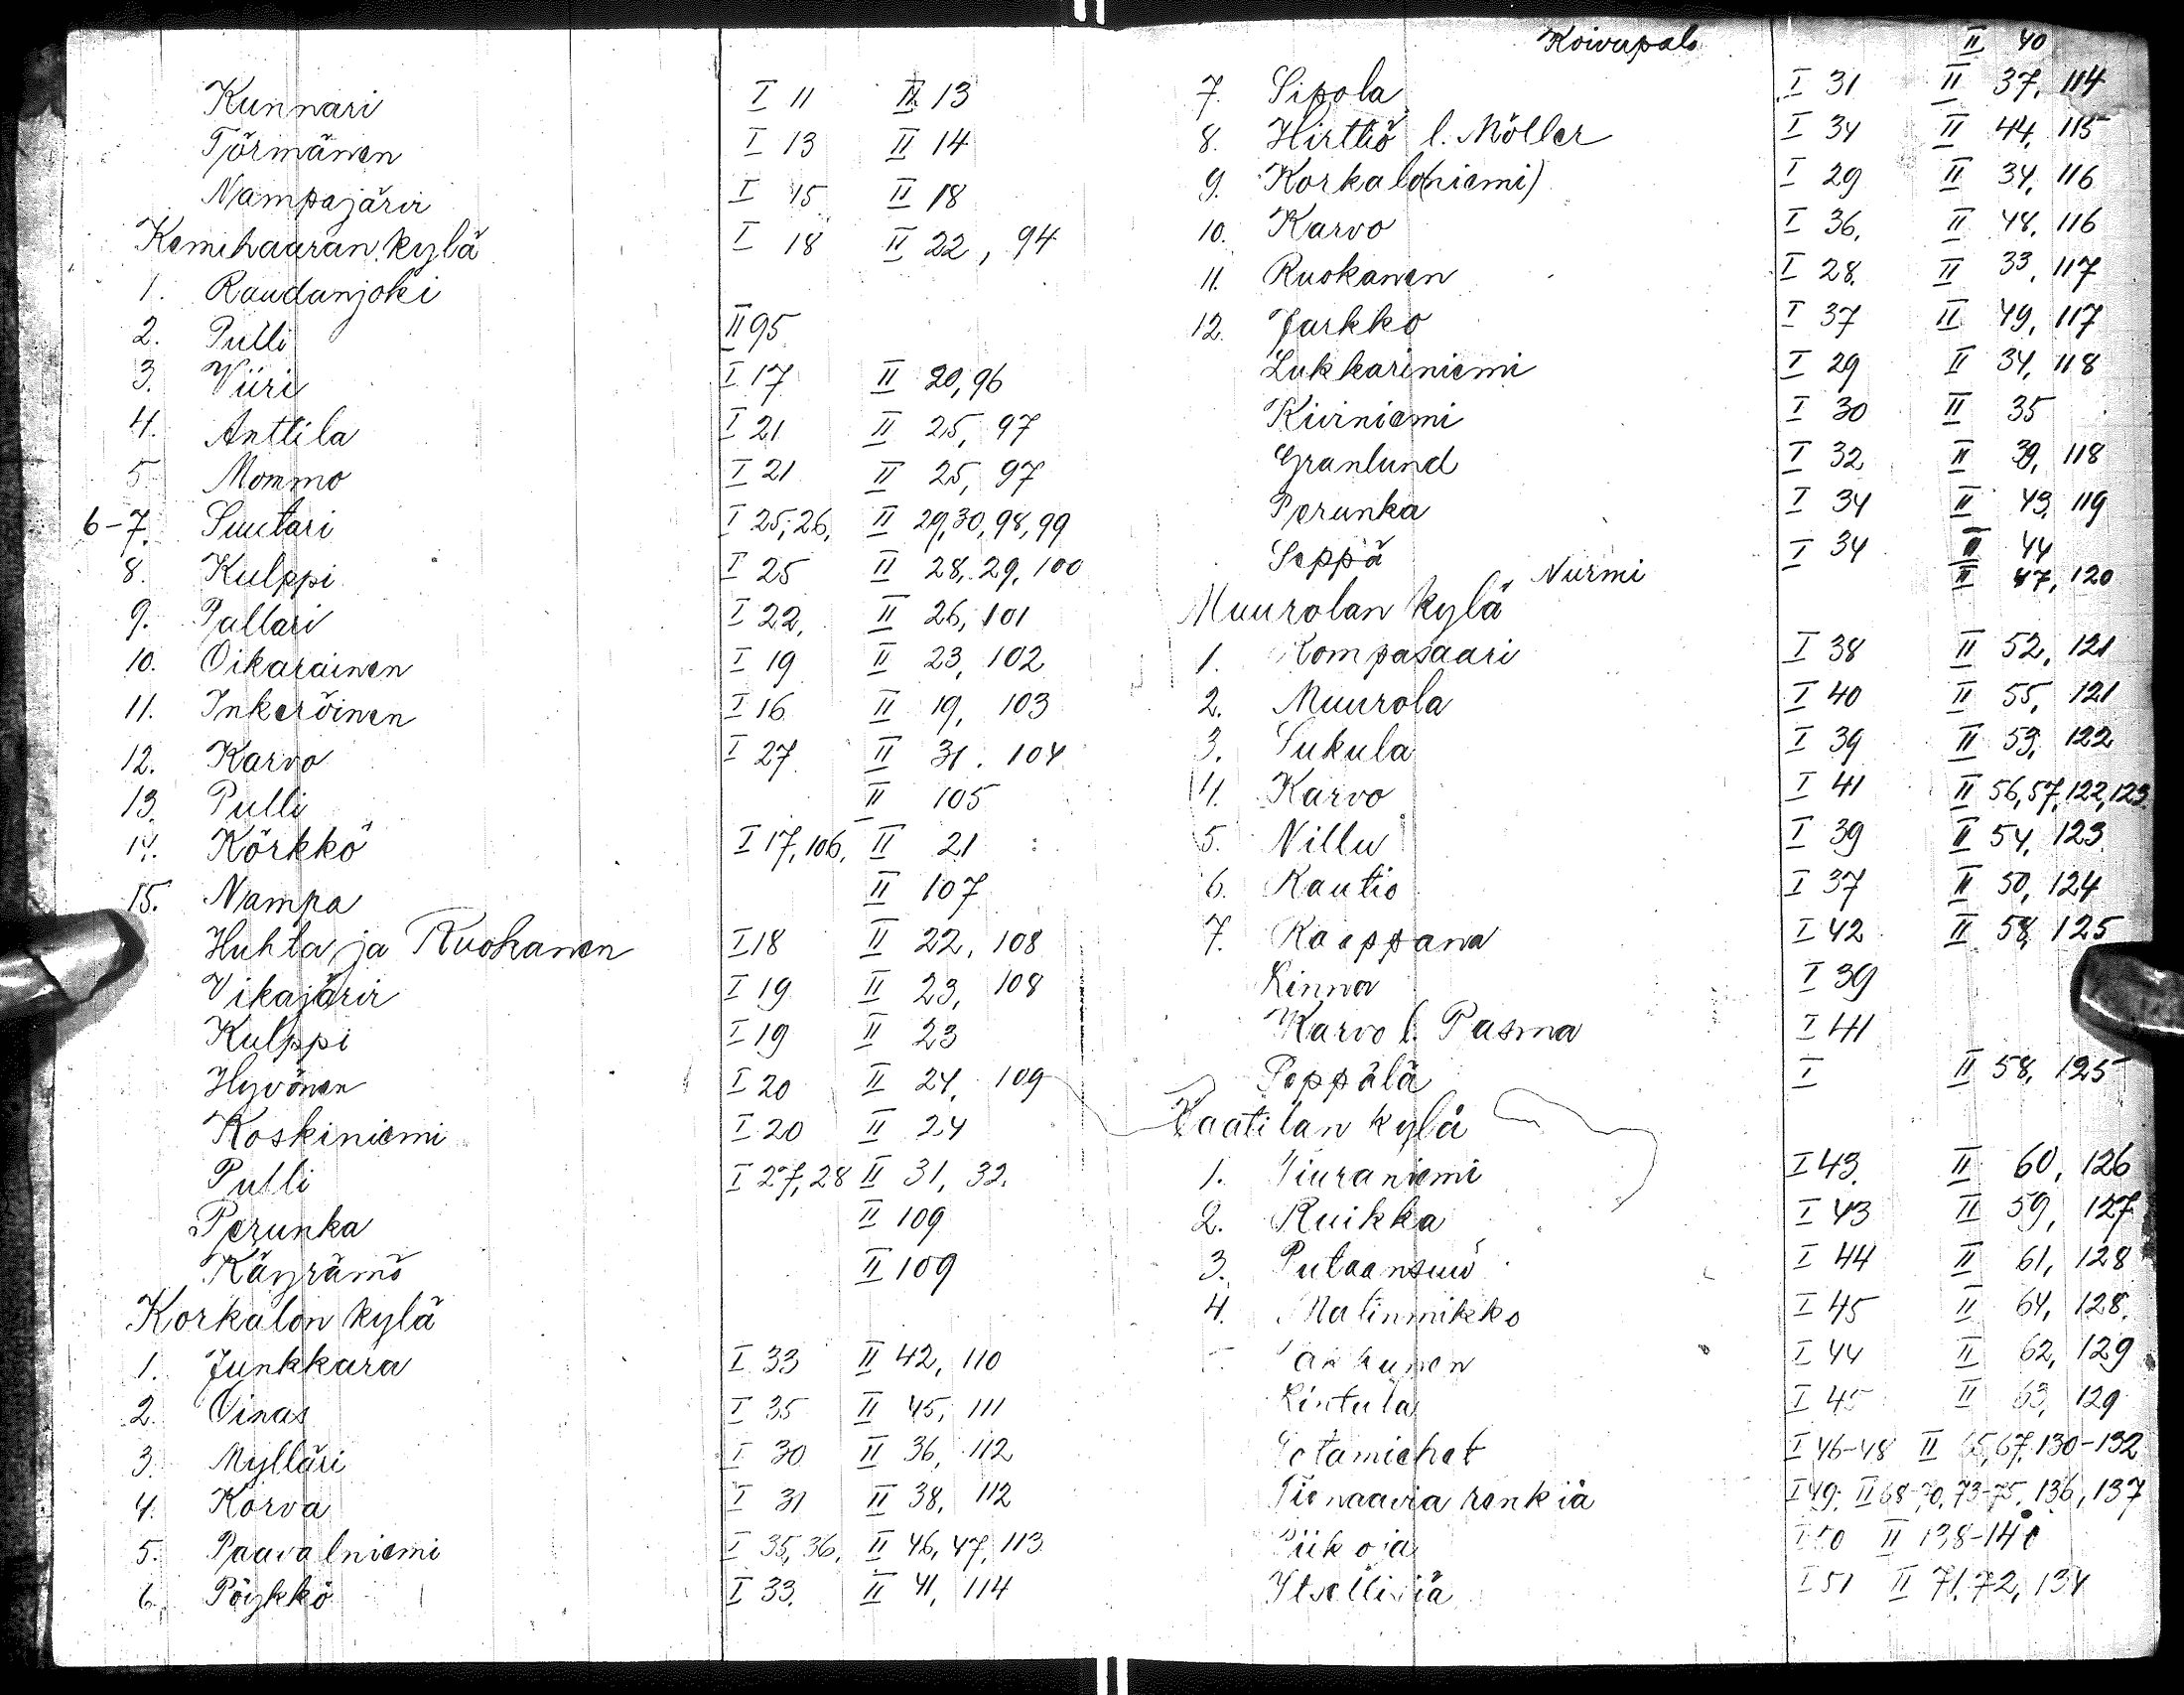 Kunnari I 11 II 13
Törmänen I 13 II 14
Nampajärvi I 15 II 18
Kemihaaran kylä I 18 II 22, 94
1. Raudanjoki
2. Pulli II 95
3. Viiri I 17 II 20, 96
4. Anttila I 21 II 25, 97
5 Mommo I 21 II 25, 97
6-7. Suutari I 25, 26, II 29, 30, 98, 99
8. Kulppi I 25 II 28, 29, 100
9. Pallari I 22, II 26, 101
10. Oikarainen I 19 II 23, 102
11. Inkeröinen I 16 II 19, 103
12. Karvo I 27 II 31. 104
13. Pulli II 105
14. Körkkö I 17, 106, II 21
15. Nampa II 107
Huhta ja Ruokanen I 18 II 22, 108
Vikajärvi I 19 II 23, 108
Kulppi I 19 II 23
Hyvönen I 20 II 24, 109
Koskiniemi I 20 II 24
Pulli I 27, 28 II 31, 32.
Perunka II 109
Käyrämö II 109
Korkalon kylä
1. Junkkara I 33 II 42, 110
2. Oinas I 35 II 45, 111
3. Mylläri I 30 II 36, 112
4. Korva I 31 II 38, 112
5. Paavalniemi I 35, 36, II 46, 47, 113
6. Pöykkö I 33. II 41, 114
Koivupalo II 40
7. Sipola I 31 II 37, 114
8. Hirttiö l. Möller I 34 II 44, 115
9. Korkalo(niemi) I 29 II 34, 116
10. Karvo I 36, II 48, 116
11. Ruokanen I 28. II 33, 117
12. Jarkko I 37 II 49, 117
Lukkariniemi I 29 II 34, 118
Kiviniemi I 30 II 35
Granlund I 32 II 39, 118
Perunka I 34 II 43, 119
Seppä I 34 II 44
Nurmi II 47, 120
Muurolan kylä
1. Kompasaari I 38 II 52, 121
2. Muurola I 40 II 55, 121
3. Sukula I 39 II 53, 122
4. Karvo I 41 II 56, 57, 122, 123
5. Nillu I 39 II 54, 123.
6. Rautio I 37 II 50, 124
7. Kaappana I 42 II 58, 125
Linna I 39
Karvo l. Pasma I 41
Peppälä I II 58, 125
Vaatilan kylä
1. Tiuraniemi I 43. II 60, 126
2. Ruikka I 43 II 59, 127
3. Putaansuu I 44 II 61, 128
4. Matinmikko I 45 II 64, 128.
I 44 II 62, 129
Lintula I 45 II 63, 129
Sotamiehet I 46-48 II 65, 67, 130-132
Tienaavia renkiä I 49. II 68-70, 73-75, 136, 137
Piikoja I 50 II 138-140
Itsellisiä I 51 II 71, 72, 134